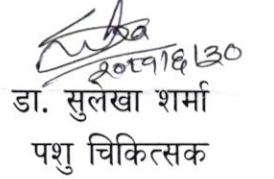 २०७९।६।३०
डा. सुलेखा शर्मा
पशु चिकित्सक